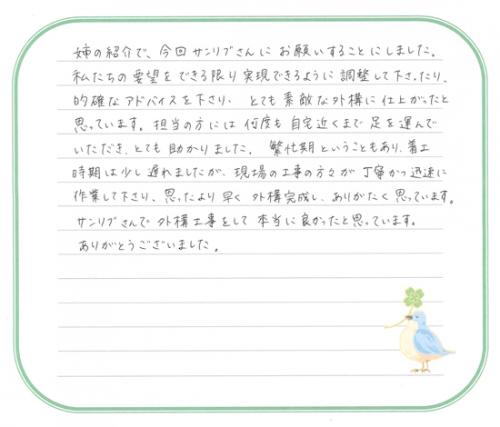 姉の紹介で、今回サンリブさんにお願いすることにしました。
私たちの要望をできる限り実現できるように調整して下さったり、
的確なアドバイスを下さり、とても素敵な外構に仕上がったと
思っています。担当の方には何度も自宅近くまで足を運んで
いただき、とても助かりました。繁忙期ということもあり、着工
時期は少し遅れましたが、現場の工事の方々が丁寧かつ迅速に
作業して下さり、思ったより早く外構完成し、ありがたく思っています。
サンリブさんで外構工事をして本当に良かったと思っています。
ありがとうございました。